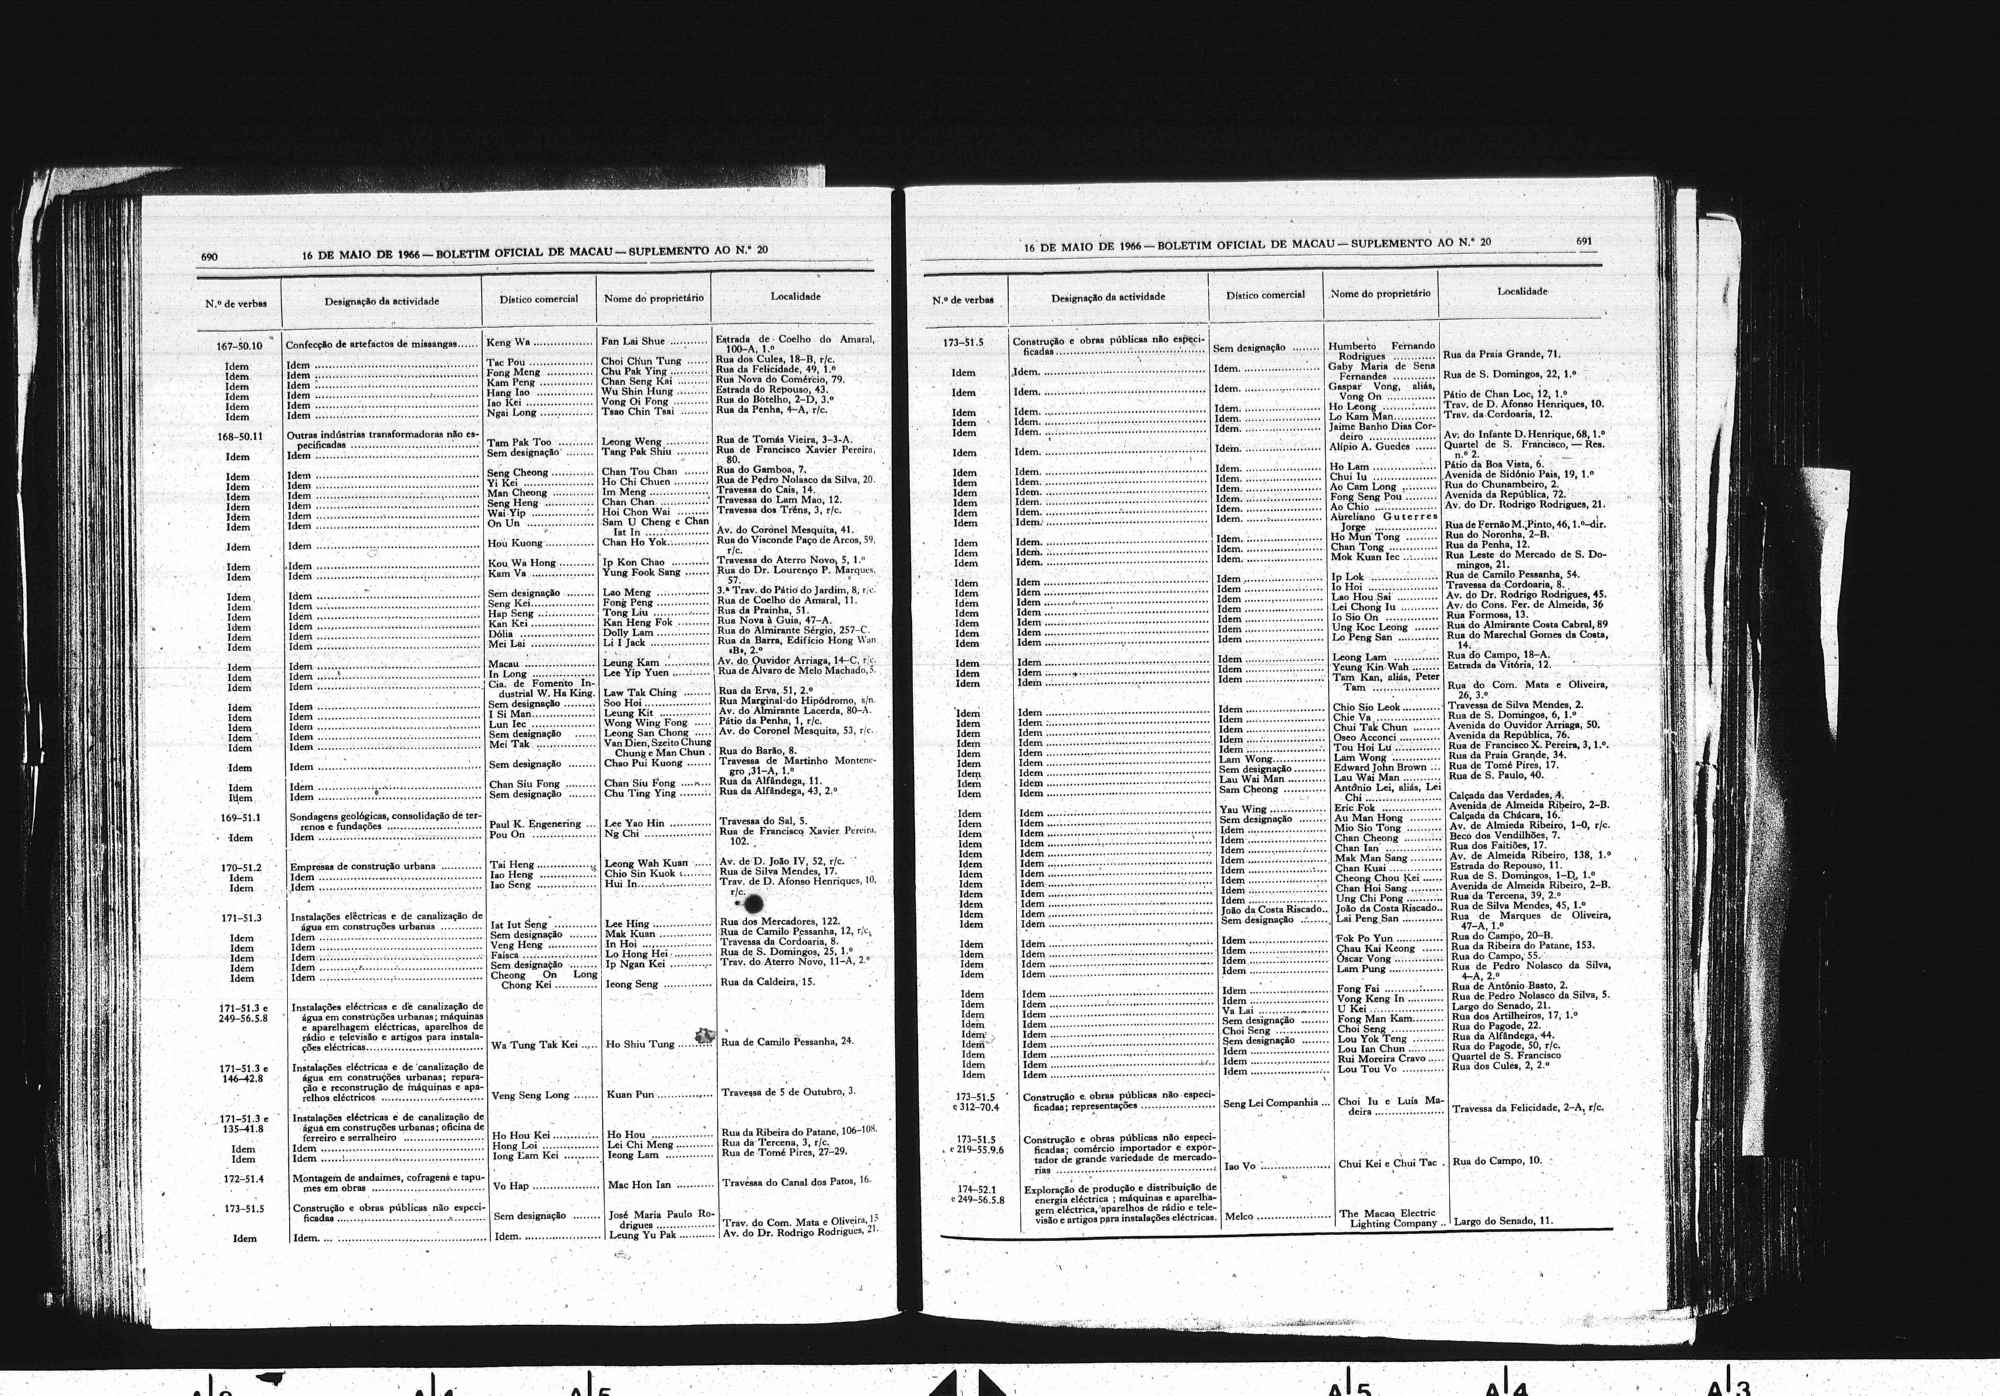 690 16 DE MAIO DE 1966 — BOLETIM OFICIAL DE MACAU — SUPLEMENTO AO N.º 20
N.º de verbas Designação da actividade Dístico comercial Nome do proprietário Localidade
167-50.10 Confecção de artefactos de missangas...... Keng Wa Fan Lai Shue Estrada de Coelho do Amaral,
100-A, 1.º
Idem Idem Tac Pou Choi Chun Tung Rua dos Cules, 18-B, r/c.
Idem Idem Fong Meng Chu Pak Ying Rua da Felicidade, 49, 1.º
Idem Idem Kam Peng Chan Seng Kai Rua Nova do Comércio, 79.
Idem Idem Hang Iao Wu Shin Hung Estrada do Repouso, 43.
Idem Idem Iao Kei Vong Oi Fong Rua do Botelho, 2-D, 3.º
Idem Idem Ngai Long Tsao Chin Tsai Rua da Penha, 4-A, r/c.
168-50.11 Outras indústrias transformadoras não es-
pecificadas Tam Pak Too Leong Weng Rua de Tomás Vieira, 3-3-A.
Idem Idem Sem designação Tang Pak Shiu Rua de Francisco Xavier Pereira,
80.
Idem Idem Seng Cheong Chan Tou Chan Rua do Gamboa, 7.
Idem Idem Yi Kei Ho Chi Chuen Rua de Pedro Nolasco da Silva, 20.
Idem Idem Man Cheong Im Meng Travessa do Cais, 14.
Idem Idem Seng Heng Chan Chan Travessa do Lam Mao, 12.
Idem Idem Wai Yip Hoi Chon Wai Travessa dos Tréns, 3, r/c.
Idem Idem On Un Sam U Cheng e Chan
Iat In Av. do Coronel Mesquita, 41.
Idem Idem Hou Kuong Chan Ho Yok Rua do Visconde Paço de Arcos, 59,
r/c.
Idem Idem Kou Wa Hong Ip Kon Chao Travessa do Aterro Novo, 5, 1.º
Idem Idem Kam Va Yung Fook Sang Rua do Dr. Lourenço P. Marques,
57.
Idem Idem Sem designação Lao Meng 3.ª Trav. do Pátio do Jardim, 8, r/c.
Idem Idem Seng Kei Fong Peng Rua de Coelho do Amaral, 11.
Idem Idem Hap Seng Tong Liu Rua da Prainha, 51.
Idem Idem Kan Kei Kan Heng Fok Rua Nova à Guia, 47-A.
Idem Idem Dólia Dolly Lam Rua do Almirante Sérgio, 257-C.
Idem Idem Mei Lai Li I Jack Rua da Barra, Edifício Hong Wan
«B», 2.º
Idem Idem Macau Leung Kam Av. do Ouvidor Arriaga, 14-C, r/c.
Idem Idem In Long Lee Yip Yuen Rua de Álvaro de Melo Machado, 5.
Idem Idem Cia. de Fomento In-
dustrial W. Ha King. Law Tak Ching Rua da Erva, 51, 2.º
Idem Idem Sem designação Soo Hoi Rua Marginal do Hipódromo, s/n.
Idem Idem I Si Man Leung Kit Av. do Almirante Lacerda, 80-A.
Idem Idem Lun Iec Wong Wing Fong Pátio da Penha, 1, r/c.
Idem Idem Sem designação Leong San Chong Av. do Coronel Mesquita, 53, r/c.
Idem Idem Mei Tak Van Dien, Szeito Chung
Chung e Man Chun Rua do Barão, 8.
Idem Idem Sem designação Chao Pui Kuong Travessa de Martinho Montene-
gro ,31-A, 1.º
Idem Idem Chan Siu Fong Chan Siu Fong Rua da Alfândega, 11.
Idem Idem Sem designação Chu Ting Ying Rua da Alfândega, 43, 2.º
169-51.1 Sondagens geológicas, consolidação de ter-
renos e fundações Paul K. Engenering Lee Yao Hin Travessa do Sal, 5.
Idem Idem Pou On Ng Chi Rua de Francisco Xavier Pereira,
102.
170-51.2 Empresas de construção urbana Tai Heng Leong Wah Kuan Av. de D. João IV, 52, r/c.
Idem Idem Iao Heng Chio Sin Kuok Rua de Silva Mendes, 17.
Idem Idem Iao Seng Hui In Trav. de D. Afonso Henriques, 10,
r/c.
171-51.3 Instalações eléctricas e de canalização de
água em construções urbanas Iat Iut Seng Lee Hing Rua dos Mercadores, 122.
Idem Idem Sem designação Mak Kuan Rua de Camilo Pessanha, 12, r/c.
Idem Idem Veng Heng In Hoi Travessa da Cordoaria, 8.
Idem Idem Faísca Lo Hong Hei Rua de S. Domingos, 25, 1.º
Idem Idem Sem designação Ip Ngan Kei Trav. do Aterro Novo, 11-A, 2.º
Idem Idem Cheong On Long
Chong Kei Ieong Seng Rua da Caldeira, 15.
171-51.3 e Instalações eléctricas e de canalização de
249-56.5.8 água em construções urbanas; máquinas
e aparelhagem eléctricas, aparelhos de
rádio e televisão e artigos para instala-
ções eléctricas Wa Tung Tak Kei Ho Shiu Tung Rua de Camilo Pessanha, 24.
171-51.3 e Instalações eléctricas e de canalização de
146-42.8 água em construções urbanas; repara-
ção e reconstrução de máquinas e apa-
relhos eléctricos Veng Seng Long Kuan Pun Travessa de 5 de Outubro, 3.
171-51.3 e Instalações eléctricas e de canalização de
135-41.8 água em construções urbanas; oficina de
ferreiro e serralheiro Ho Hou Kei Ho Hou Rua da Ribeira do Patane, 106-108.
Idem Idem Hong Loi Lei Chi Meng Rua da Tercena, 3, r/c.
Idem Idem Iong Lam Kei Ieong Lam Rua de Tomé Pires, 27-29.
172-51.4 Montagem de andaimes, cofragens e tapu-
mes em obras Vo Hap Mac Hon Ian Travessa do Canal dos Patos, 16.
173-51.5 Construção e obras públicas não especi-
ficadas Sem designação José Maria Paulo Ro-
drigues Trav. do Com. Mata e Oliveira, 15
Idem Idem. Idem. Leung Yu Pak Av. do Dr. Rodrigo Rodrigues, 21.
16 DE MAIO DE 1966 — BOLETIM OFICIAL DE MACAU — SUPLEMENTO AO N.º 20 691
N.º de verbas Designação da actividade Dístico comercial Nome do proprietário Localidade
173-51.5 Construção e obras públicas não especi-
ficadas Sem designação Humberto Fernando
Rodrigues Rua da Praia Grande, 71.
Idem Idem. Idem. Gaby Maria de Sena
Fernandes Rua de S. Domingos, 22, 1.º
Idem Idem. Idem. Gaspar Vong, aliás,
Vong On Pátio de Chan Loc, 12, 1.º
Idem Idem. Idem. Ho Leong Trav. de D. Afonso Henriques, 10.
Idem Idem. Idem. Lo Kam Man Trav. da Cordoaria, 12.
Idem Idem. Idem. Jaime Banho Dias Cor-
deiro Av. do Infante D. Henrique, 68, 1.º
Idem Idem. Idem. Alípio A. Guedes Quartel de S. Francisco, — Res.
n.º 2.
Idem Idem. Idem. Ho Lam Pátio da Boa Vista, 6.
Idem Idem. Idem. Chui Iu Avenida de Sidónio Pais, 19, 1.º
Idem Idem. Idem. Ao Cam Long Rua do Chunambeiro, 2.
Idem Idem. Idem. Fong Seng Pou Avenida da República, 72.
Idem Idem. Idem. Ao Chio Av. do Dr. Rodrigo Rodrigues, 21.
Idem Idem. Idem. Aureliano Guterres
Jorge Rua de Fernão M. Pinto, 46, 1.º-dir.
Idem Idem. Idem. Ho Mun Tong Rua do Noronha, 2-B.
Idem Idem. Idem. Chan Tong Rua da Penha, 12.
Idem Idem. Idem. Mok Kuan Iec Rua Leste do Mercado de S. Do-
mingos, 21.
Idem Idem Idem Ip Lok Rua de Camilo Pessanha, 54.
Idem Idem Idem Io Hoi Travessa da Cordoaria, 8.
Idem Idem Idem Lao Hou Sai Av. do Dr. Rodrigo Rodrigues, 45.
Idem Idem Idem Lei Chong Iu Av. do Cons. Fer. de Almeida, 36
Idem Idem Idem Io Sio On Rua Formosa, 13.
Idem Idem Idem Ung Koc Leong Rua do Almirante Costa Cabral, 89
Idem Idem Idem Lo Peng San Rua do Marechal Gomes da Costa,
14.
Idem Idem Idem Leong Lam Rua do Campo, 18-A.
Idem Idem Idem Yeung Kin Wah Estrada da Vitória, 12.
Idem Idem Idem Tam Kan, aliás, Peter
Tam Rua do Com. Mata e Oliveira,
26, 3.º
Idem Idem Idem Chio Sio Leok Travessa de Silva Mendes, 2.
Idem Idem Idem Chie Va Rua de S. Domingos, 6, 1.º
Idem Idem Idem Chui Tak Chun Avenida do Ouvidor Arriaga, 50.
Idem Idem Idem Oseo Acconci Avenida da República, 76.
Idem Idem Idem Tou Hoi Lu Rua de Francisco X. Pereira, 3, 1.º.
Idem Idem Lam Wong Lam Wong Rua da Praia Grande, 34.
Idem Idem Sem designação Edward John Brown Rua de Tomé Pires, 17.
Idem Idem Lau Wai Man Lau Wai Man Rua de S. Paulo, 40.
Idem Idem Sam Cheong António Lei, aliás, Lei
Chi Calçada das Verdades, 4.
Idem Idem Yau Wing Eric Fok Avenida de Almeida Ribeiro, 2-B.
Idem Idem Sem designação Au Man Hong Calçada da Chácara, 16.
Idem Idem Idem Mio Sio Tong Av. de Almieda Ribeiro, 1-0, r/c.
Idem Idem Idem Chan Cheong Beco dos Vendilhões, 7.
Idem Idem Idem Chan Ian Rua dos Faitiões, 17.
Idem Idem Idem Mak Man Sang Av. de Almeida Ribeiro, 138, 1.º
Idem Idem Idem Chan Kuai Estrada do Repouso, 11.
Idem Idem Idem Cheong Chou Kei Rua de S. Domingos, 1-D, 1.º
Idem Idem Idem Chan Hoi Sang Avenida de Almeida Ribeiro, 2-B.
Idem Idem Idem Ung Chi Pong Rua da Tercena, 39, 2.º
Idem Idem João da Costa Riscado.. João da Costa Riscado.. Rua de Silva Mendes, 45, 1.º
Idem Idem Sem designação Lai Peng San Rua de Marques de Oliveira,
47-A, 1.º
Idem Idem Idem Fok Po Yun Rua do Campo, 20-B.
Idem Idem Idem Chau Kai Keong Rua da Ribeira do Patane, 153.
Idem Idem Idem Óscar Vong Rua do Campo, 55.
Idem Idem Idem Lam Pung Rua de Pedro Nolasco da Silva,
4-A, 2.º
Idem Idem Idem Fong Fai Rua de António Basto, 2.
Idem Idem Idem Vong Keng In Rua de Pedro Nolasco da Silva, 5.
Idem Idem Va Lai U Kei Largo do Senado, 21.
Idem Idem Sem designação Fong Man Kam Rua dos Artilheiros, 17, 1.º
Idem Idem Choi Seng Choi Seng Rua do Pagode, 22.
Idem Idem Sem designação Lou Yok Teng Rua da Alfândega, 44.
Idem Idem Idem Lou Ian Chun Rua do Pagode, 50, r/c.
Idem Idem Idem Rui Moreira Cravo Quartel de S. Francisco
Idem Idem Idem Lou Tou Vo Rua dos Cules, 2, 2.º
173-51.5 Construção e obras públicas não especi-
e 312-70.4 ficadas; representações Seng Lei Companhia Choi Iu e Luís Ma-
deira Travessa da Felicidade, 2-A, r/c.
173-51.5 Construção e obras públicas não especi-
e 219-55.9.6 ficadas; comércio importador e expor-
tador de grande variedade de mercado-
rias Iao Vo Chui Kei e Chui Tac Rua do Campo, 10.
174-52.1 Exploração de produção e distribuição de
e 249-56.5.8 energia eléctrica ; máquinas e aparelha-
gem eléctrica, aparelhos de rádio e tele-
visão e artigos para instalações eléctricas. Melco The Macao Electric
Lighting Company Largo do Senado, 11.
A 5 A 4 A 3